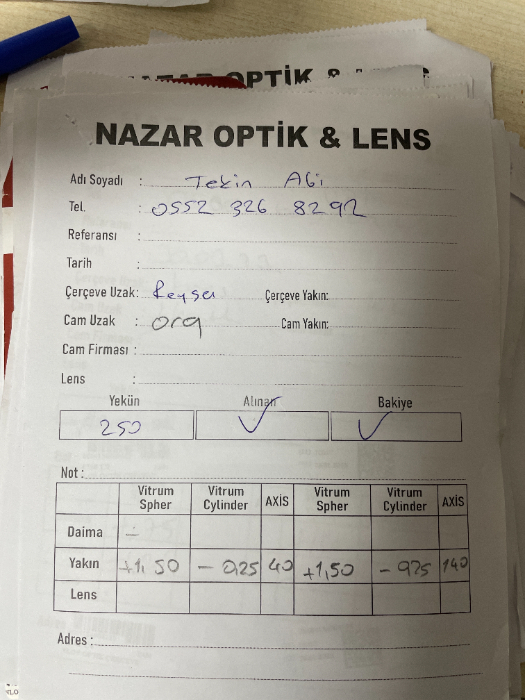 OPTİK &
NAZAR OPTİK & LENS
Adı Soyadı : Tekin Abi
Tel. : 0552 326 8292
Referansı :
Tarih :
Çerçeve Uzak: Çerçeve Yakın:
Cam Uzak : org Cam Yakın:
Cam Firması :
Lens :
Yekün Alınan Bakiye
250 ✓ ✓
Not :
Vitrum Vitrum Vitrum Vitrum
Spher Cylinder AXİS Spher Cylinder AXİS
Daima –
Yakın +1,50 – 0,25 40 +1,50 – 0,25 140
Lens
Adres :